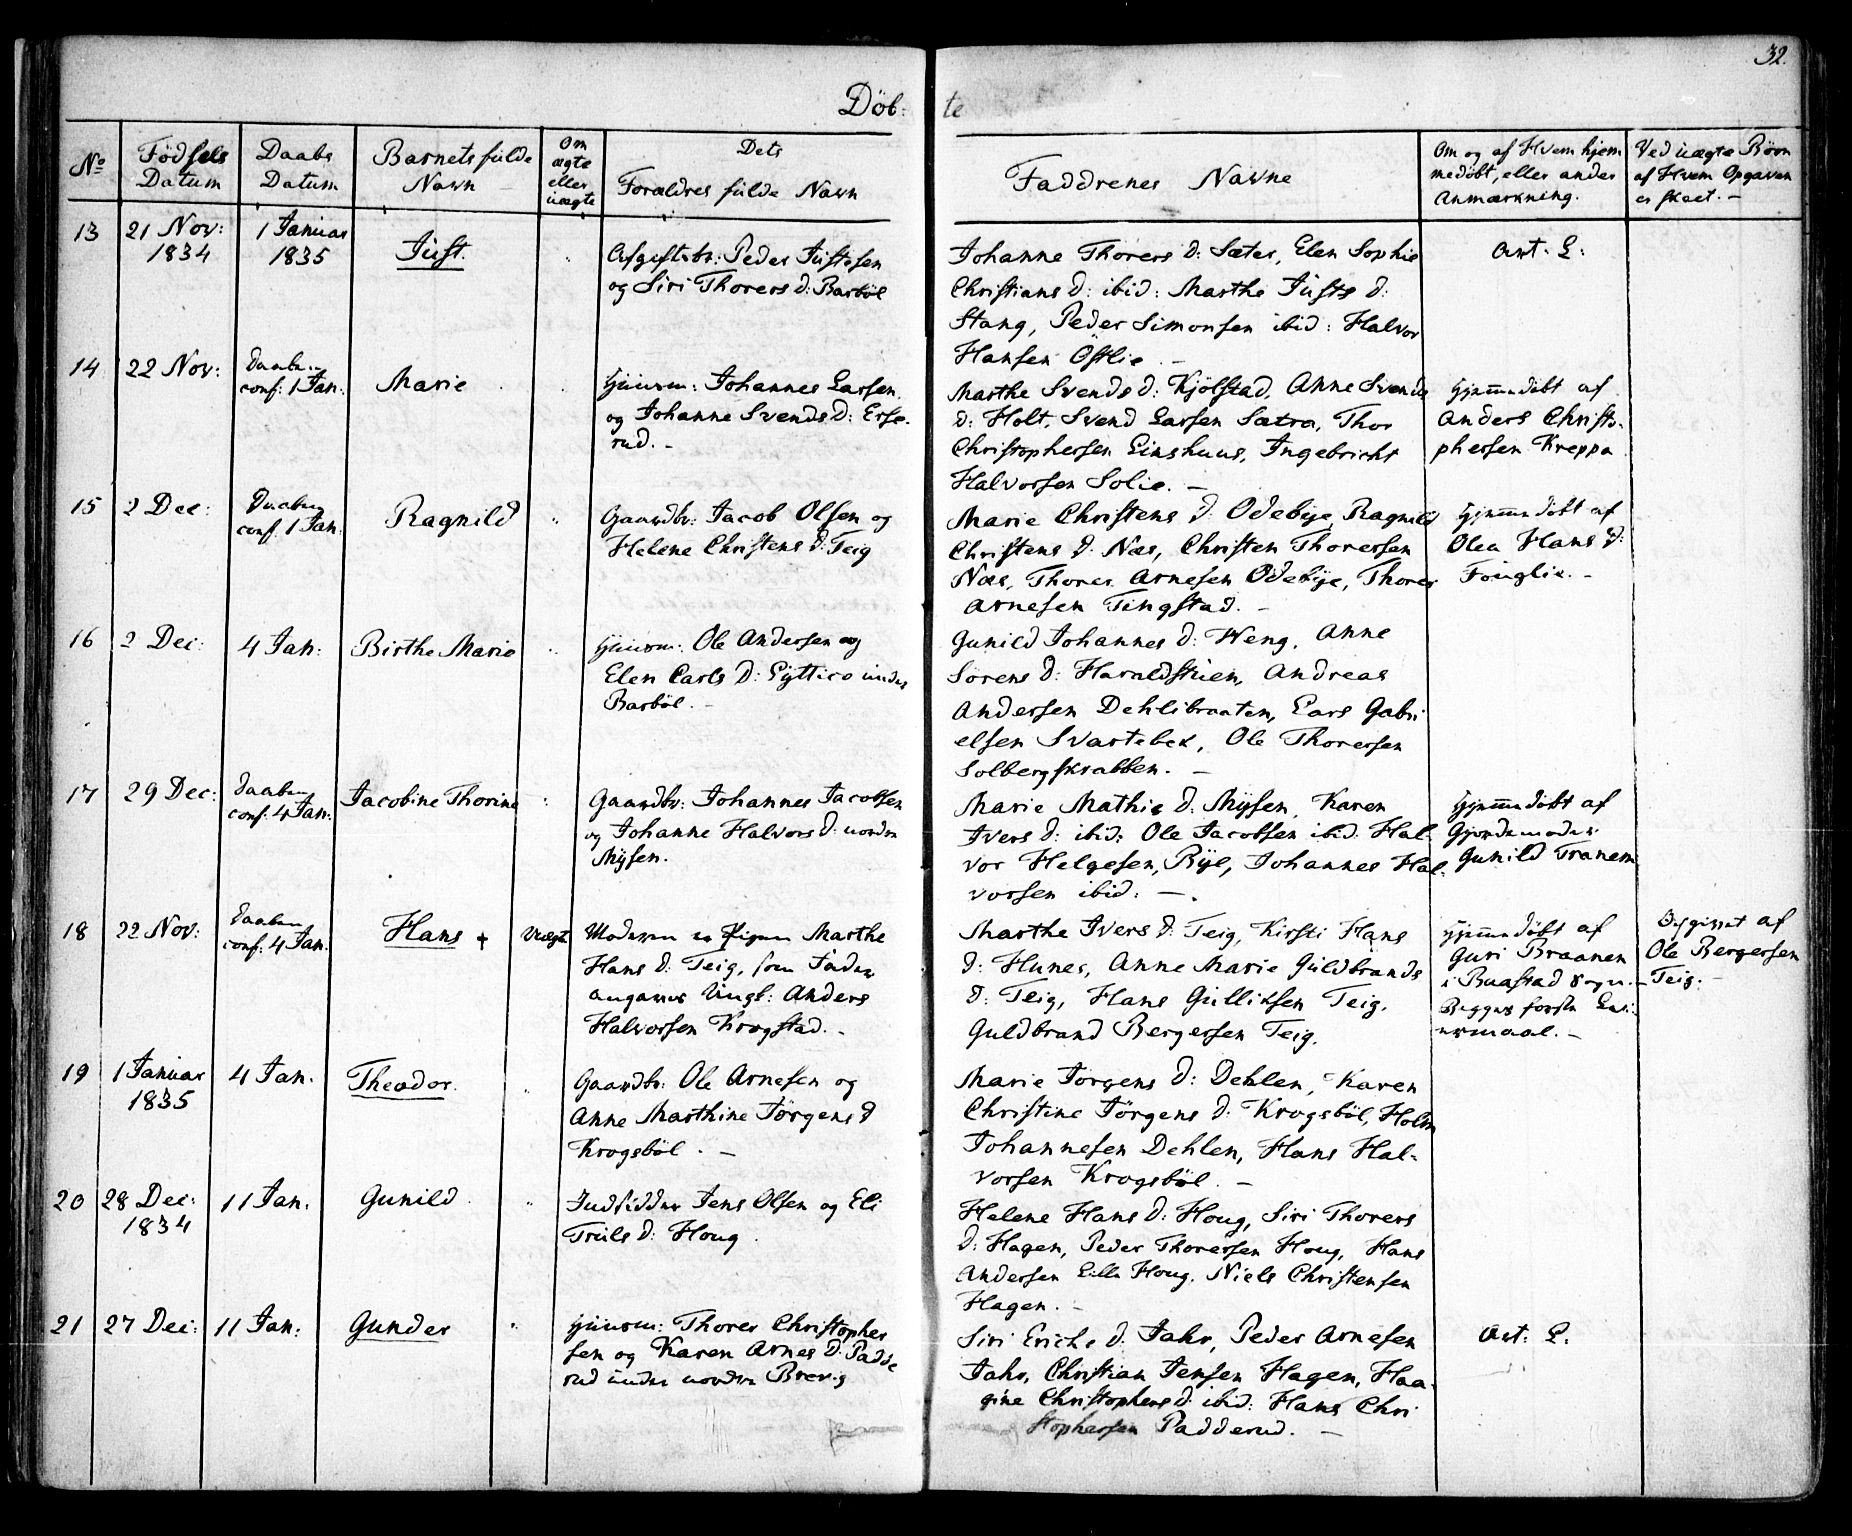 32.
Döb- te
No
Födsels Datum
Daabs Datum
Barnets fulde Navn
Om ægte eller uægte
Dets Forældres fulde Navn
Faddrenes Navne
Om og af Hvem hjem medöbt, eller andet Anmærkning.
Ved uægte Börn af Hvem Opgaven er skeet. -
13
21 Nov: 1834
1 Januar 1835
Just.
Afgiftsbr: Peder Justesen
og Siri Thorers d: Barböl
Johanne Thorers d: Sæter, Elen Sophie
Christians d: ibid: Marthe Justs d:
Stang, Peder Simonsen ibid: Halvor
Hansen Östlie. -
Att. L:
14
22 Nov:
Daaben conf: 1 Jan:
Marie
Huusm: Johannes Larsen
og Johanne Svends d: Erse-
rud. -
Marthe Svends d: Kjölstad, Anne Svends
d: Holt, Svend Larsen Sætra, Thor
Christophersen Linshuus, Ingebricht
Halvorsen Solie. -
Hjemmedöbt af
Anders Christo-
phersen Kreppa
15
2 Dec:
Daaben conf. 1 Jan:
Ragnild
Gaardbr: Jacob Olsen og
Helene Christens d: Teig
Marie Christens d: Odebye, Ragnild
Christens d: Næs, Christen Thoresen
Næs, Thorer Arnesen Odebye, Thorer
Arnesen Tingstad. -
Hjemmedöbt af
Olea Hans d:
Fouglie. -
16
2 Dec:
4 Jan:
Birthe Marie
Huusm: Ole Andersen og
Elen Carls d: under
Barböl. -
Gunild Johannes d: Weng, Anne
Sörens d: Haraldstuen, Andreas
Andersen Dehlibraaten, Lars Gabri
elsen Svartebek, Ole Thoresen
Solbergskrabben. -
17
29 Dec:
Daaben conf: 4 Jan:
Jacobine Thorine
Gaardbr: Johannes Jacobsen
og Johanne Halvors d: nordre
Mysen.
Marie Mathie d: Mysen, Karen
Ivers d: ibid: Ole Jacobsen ibid. Hal-
vor Helgesen, Rye, Johannes Hal-
vorsen ibid: -
Hjemmedöbt af
Gjordemoder
Gunild Tranem
18
22 Nov:
Daaben conf: 4 Jan.
Hans +
Uægte
Moderen er Pigen Marthe
Hans d: Teig, som Fader
angaves Ungk: Anders
Halvorsen Krogstad. -
Marthe Ivers d: Teig, Kirsti Hans
d: Hunes, Anne Marie Guldbrands
d: Teig, Hans Gulliksen Teig,
Guldbrand Bergersen Teig.
Hjemmedöbt af
Guri Braanen
i Buastad Sogn. -
Begges förste Lei-
ermaal. -
Opgivet af
Ole Bergersen
Teig. -
19
1 Januar 1835
4 Jan.
Theodor.
Gaardbr: Ole Arnesen og
Anne Marthine Jörgens d
Krogsböl. -
Marie Jörgens d: Dehlen, Karen
Christine Jörgens d: Krogsböl, Holm
Johannesen Dehlen, Hans Hal-
vorsen Krogsböl. -
20
28 Dec: 1834
11 Jan.
Gunild
Indsidder Jens Olsen og Eli
Truls d: Houg.
Helene Hans d: Houg, Siri Thorers
d: Hagen, Peder Thoresen Houg, Hans
Andersen Lille Houg, Niels Christensen
Hagen. -
21
27 Dec:
11 Jan:
Gunder
Huusm: Thorer Christopher
sen og Karen Arnes d: Padde
rud under nordre Brevig
Siri Erichs d: Jahr, Peder Arnesen
Jahr, Christian Jensen Hagen, Haa-
gine Christophers d: ibid: Hans Chri
stophersen Padderud. -
Att: L.